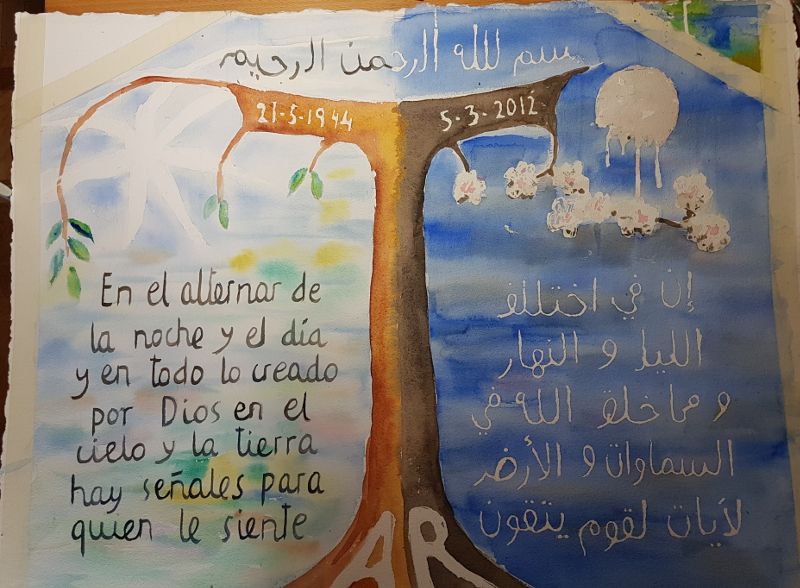 بسم لله الرحمن الرحيم
21-5-1944
5-3-2012
En el alternar de
la noche y el día
y en todo lo creado
por Dios en el
cielo y la tierra
hay señales para
quien le siente
إن في اختلف
الليل و النهار
و ما خلق الله في
السماوات و الأرض
لآيات لقوم يتقون
AR